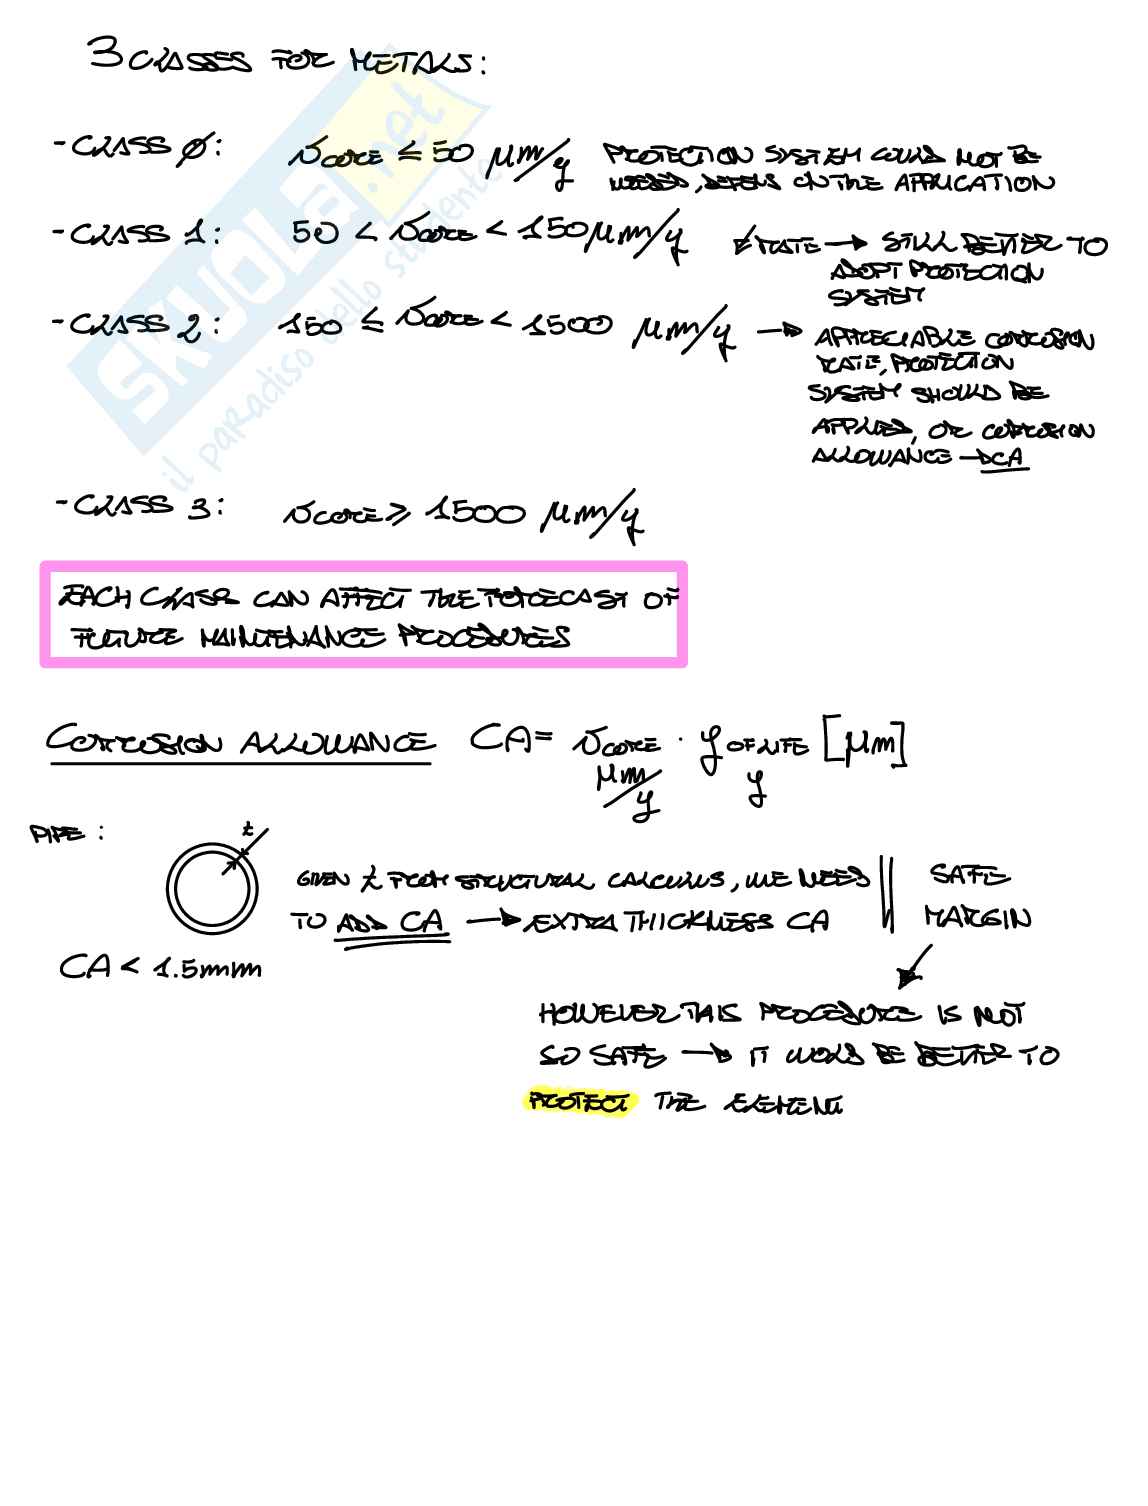 3 CLASSES FOR METALS:
- CLASS Ø: vcorr ≤ 50 μm/y PROTECTION SYSTEM COULD NOT BE
NEEDED, DEPENDS ON THE APPLICATION
- CLASS 1: 50 < vcorr < 150 μm/y RATE → STILL BETTER TO
ADOPT PROTECTION
SYSTEM
- CLASS 2: 150 ≤ vcorr < 1500 μm/y → APPRECIABLE CORROSION
RATE, PROTECTION
SYSTEM SHOULD BE
APPLIED, OR CORROSION
ALLOWANCE → CA
- CLASS 3: vcorr ≥ 1500 μm/y
EACH CLASS CAN AFFECT THE FORECAST OF
FUTURE MAINTENANCE PROCEDURES
CORROSION ALLOWANCE CA = vcorr · y OF LIFE [μm]
μm/y y
PIPE: t
GIVEN t FROM STRUCTURAL CALCULUS, WE NEED || SAFE
TO ADD CA → EXTRA THICKNESS CA MARGIN
CA < 1.5mm
HOWEVER THIS PROCEDURE IS NOT
SO SAFE → IT WOULD BE BETTER TO
PROTECT THE ELEMENT
SKUOLA.net
il paradiso dello studente